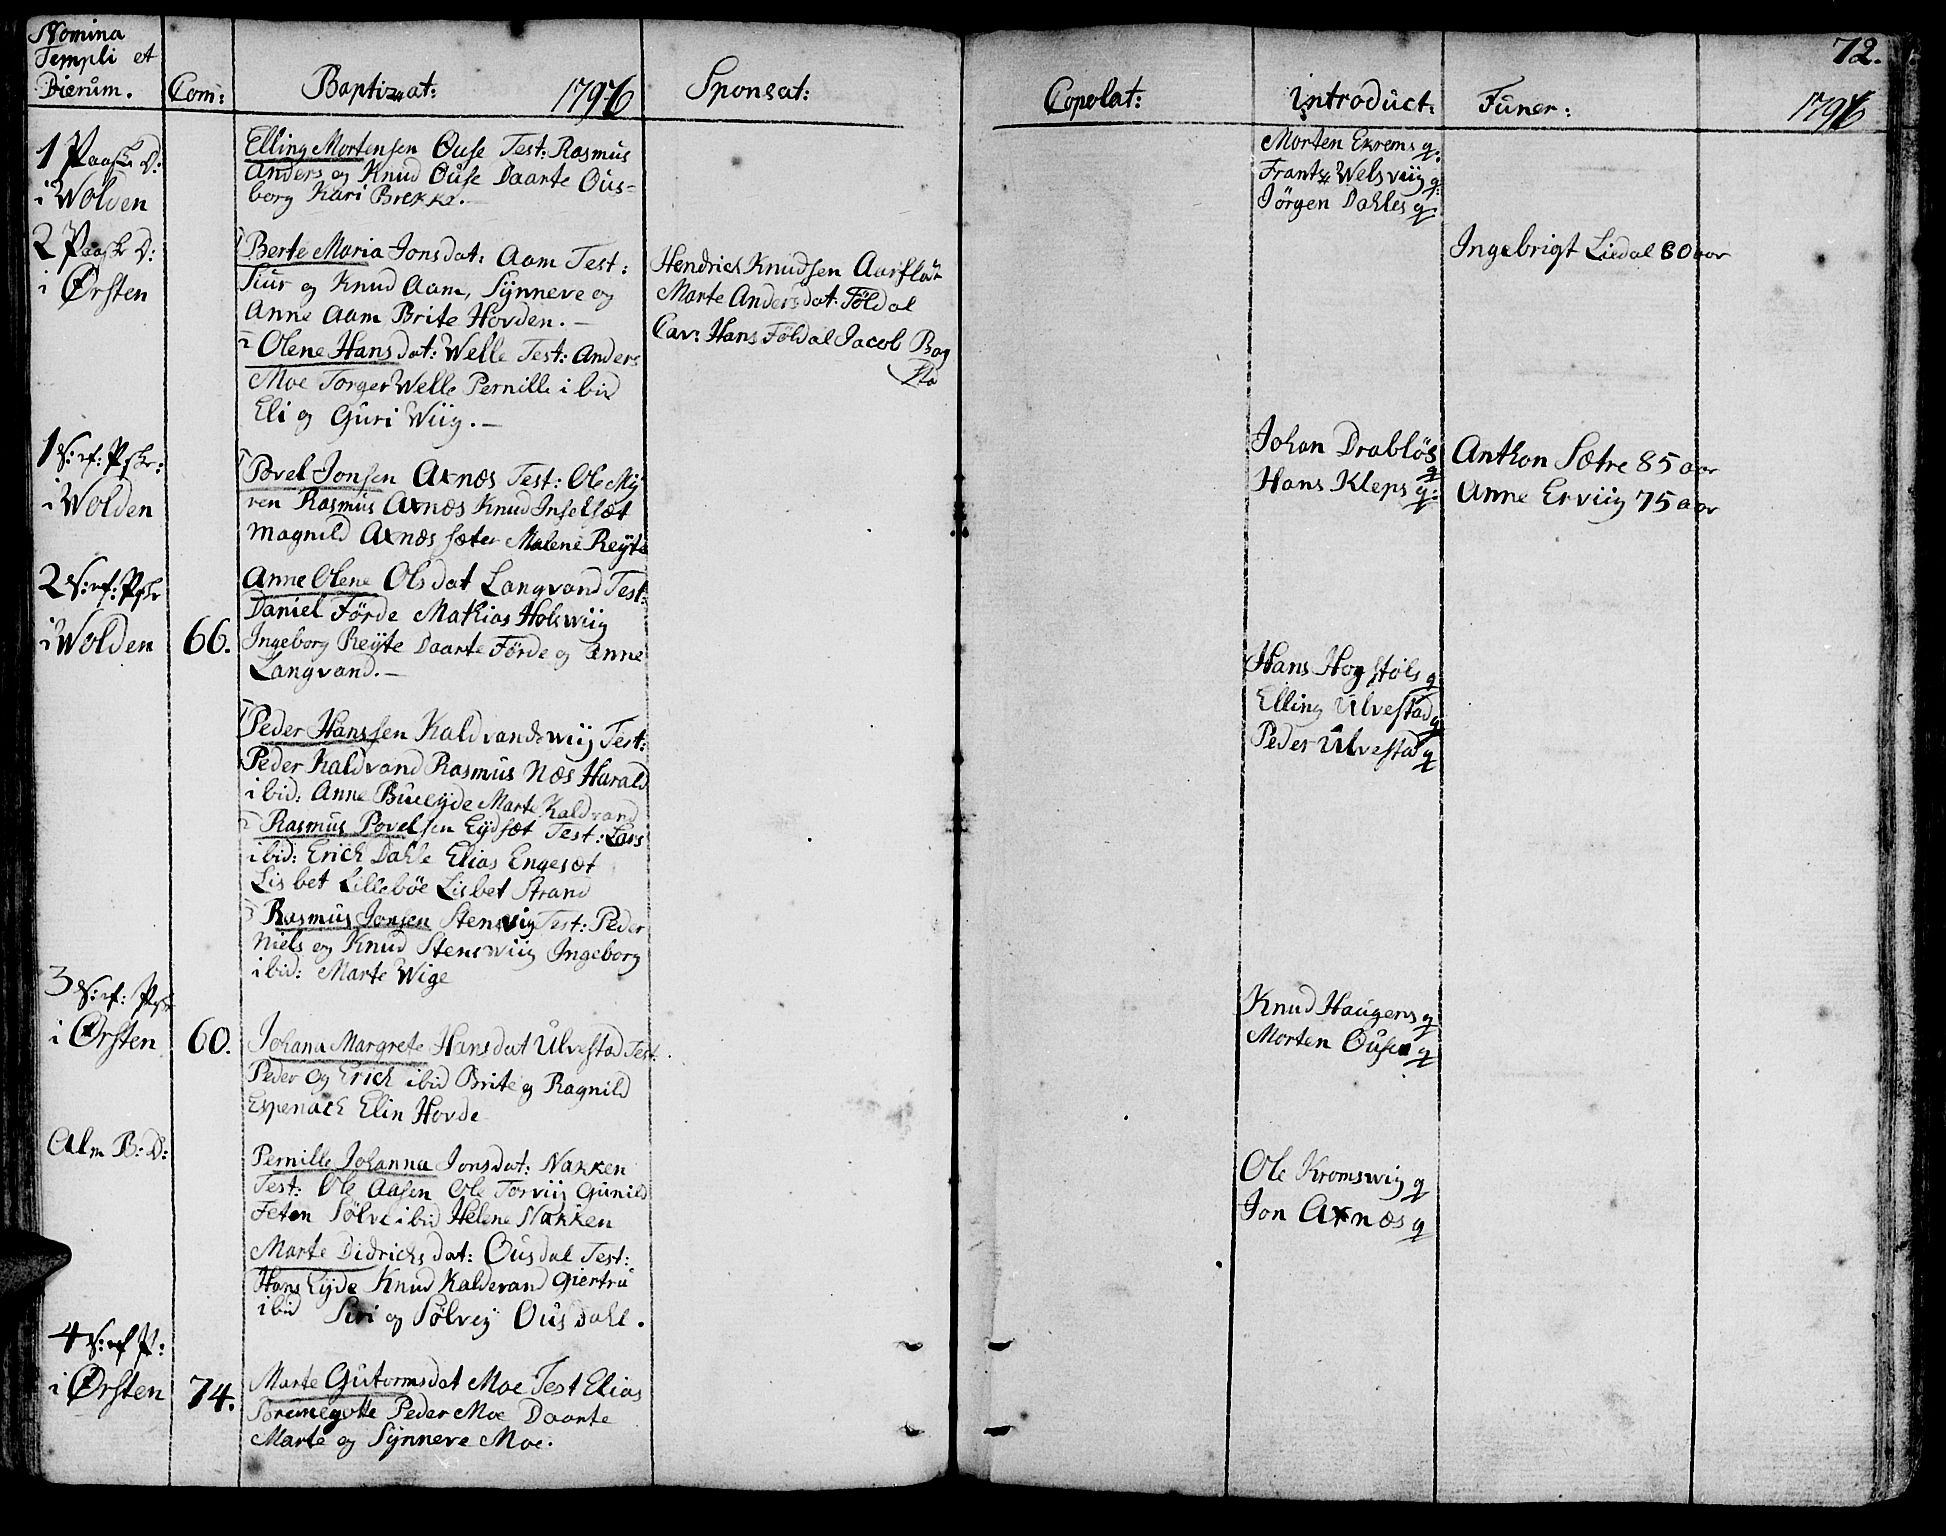 Nomina
Templi et
Dierum.
Com:
Baptizat:
1796
Sponsat:
1 Paaske D:
i Wolden
Elling Mortensen Ouse Test: Rasmus
Anders og Knud Ouse Daarte Ous-
borg Kari Brekke.
2 Paask D:
i Ørsten
1 Berte Maria Jonsdat: Aam Test:
Siur og Knud Aam, Synneve og
Anne Aam Brite Hovden.
2 Olene Hansdat: Welle Test: Anders
Moe Torger Welle Pernille ibid
Eli og Guri Wiig.
Hendrich Knudsen Aarflot
Marte Andersdat: Földal
Cav: Hans Földal Jacob Bog
sto
1 S: ef: Pskr:
i Wolden
Povel Jonsen Axnæs Test: Ole My
ren Rasmus Axnæs Knud Inselsæt
Magnild Axnæs sæter Malene Reyte
2 S: ef: Pskr
i Wolden
66.
Anne Olene Olsdat Langvand Test:
Daniel Förde Mathias Holswiig
Ingeborg Reyte Daarte Förde og Anne
Langvand.
1 Peder Hanssen Kaldvandswiig Test:
Peder Kaldvand Rasmus Næs Harald
ibid: Anne Bueyde Marte Kaldvand
2 Rasmus Povelsen Eydsæt Test: Lars
ibid: Erich Dahle Elias Engesæt
Lisbet Lillebøe Lisbet Strand
3 Rasmus Jonsen Stenswig Test: Peder
Niels og Knud Stenswiig Ingeborg
ibid: Marte Wige
3 S: ef: Pskr
i Ørsten
60.
Johana Margrete Hansdat Ulvestad Test
Peder og Erich ibid Brite og Ragnild
Espenach Elin Hovde
Alm B: D:
Pernille Johanna Jonsdat: Nakken
Test: Ole Aasen Ole Torviig Gunild
Feten Sølvi ibid Helene Nakken
Marte Didrichsdat: Ousdal Test:
Hans Eyde Knud Kaldevand Giertru
ibid Siri og Sølvey Ousdahl.
4 S: ef P:
i Ørsten
74.
Marte Gutormsdat Moe Test Elias
Peder Moe Daarte
Marte og Synneve Moe.
72.
Copolat:
introduct:
Funer:
1796
Morten Ekrems q:
Frantz Welsviig q:
Jörgen Dahles q
Ingebrigt Liedal 80 aar
Johan Drabløs q
Hans Kleps q:
Anthon Sætre 85 aar
Anne Erviig 75 aar
Hans Hogstøls q
Elling Ulvestad q
Peder Ulvestad q
Knud Haugens q
Morten Ouse q
Ole Kromswig q
Jon Axnæs q